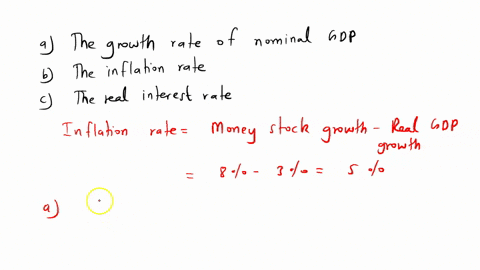 a) The growth rate of nominal GDP
b) The inflation rate
c) The real interest rate
Inflation rate = Money stock growth - Real GDP growth
= 8% - 3% = 5%
a)